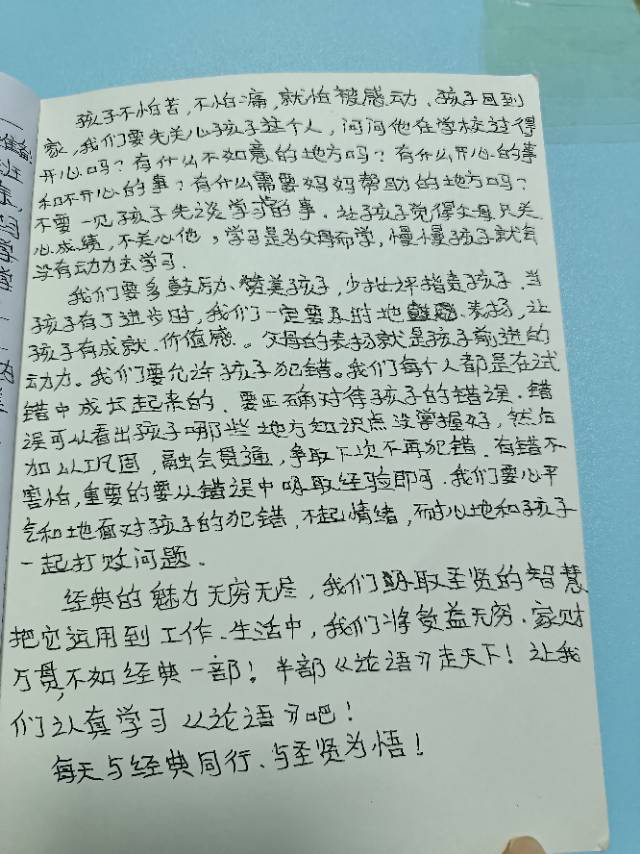 孩子不怕苦，不怕痛，就怕被感动。孩子回到
家，我们要先关心孩子这个人，问问他在学校过得
开心吗？有什么不如意的地方吗？有什么开心的事
和不开心的事？有什么需要妈妈帮助的地方吗？
不要一见孩子先谈学习的事。让孩子觉得父母只关
心成绩，不关心他，学习是为父母而学，慢慢孩子就会
没有动力去学习。
我们要多鼓励、赞美孩子，少批评指责孩子。当
孩子有了进步时，我们一定要及时地表扬，让
孩子有成就、价值感。父母的表扬就是孩子前进的
动力。我们要允许孩子犯错。我们每个人都是在试
错中成长起来的。要正确对待孩子的错误。错
误可以看出孩子哪些地方知识点没掌握好，然后
加以巩固，融会贯通，争取下次不再犯错。有错不
害怕，重要的要从错误中吸取经验即可。我们要心平
气和地面对孩子的犯错，不起情绪，而耐心地和孩子
一起打败问题。
经典的魅力无穷无尽，我们吸取圣贤的智慧
把它运用到工作、生活中，我们将受益无穷。家财
万贯，不如经典一部！半部《论语》走天下！让我
们认真学习《论语》吧！
每天与经典同行、与圣贤为悟！
准备
班
学